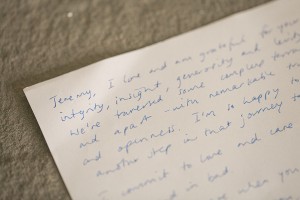 Jeremy, I love and am grateful for your
integrity, insight, generosity and levity
We're traversed some complex terrain
and apart - with remarkable
and openness. I'm so happy to
another step in that journey to
I commit to love and care
and in bad.
when you